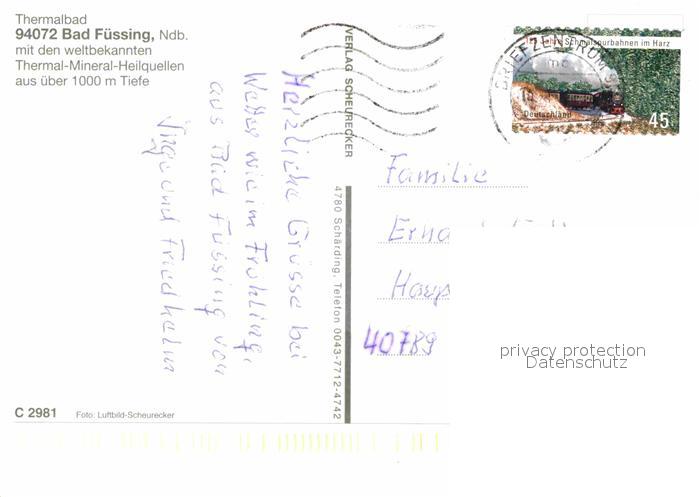 Thermalbad
94072 Bad Füssing, Ndb.
mit den weltbekannten
Thermal-Mineral-Heilquellen
aus über 1000 m Tiefe
Herzliche Grüsse bei
Wetter wie im Frühling,
aus Bad Füssing von
Inge und Friedhelm
C 2981 Foto: Luftbild-Scheurecker
VERLAG SCHEURECKER
4780 Schärding, Telefon 0043-7712-4742
BRIEFZENTRUM
125 Jahre Schmalspurbahnen im Harz
Deutschland 45
Familie
Erna
Haup
40789
privacy protection
Datenschutz